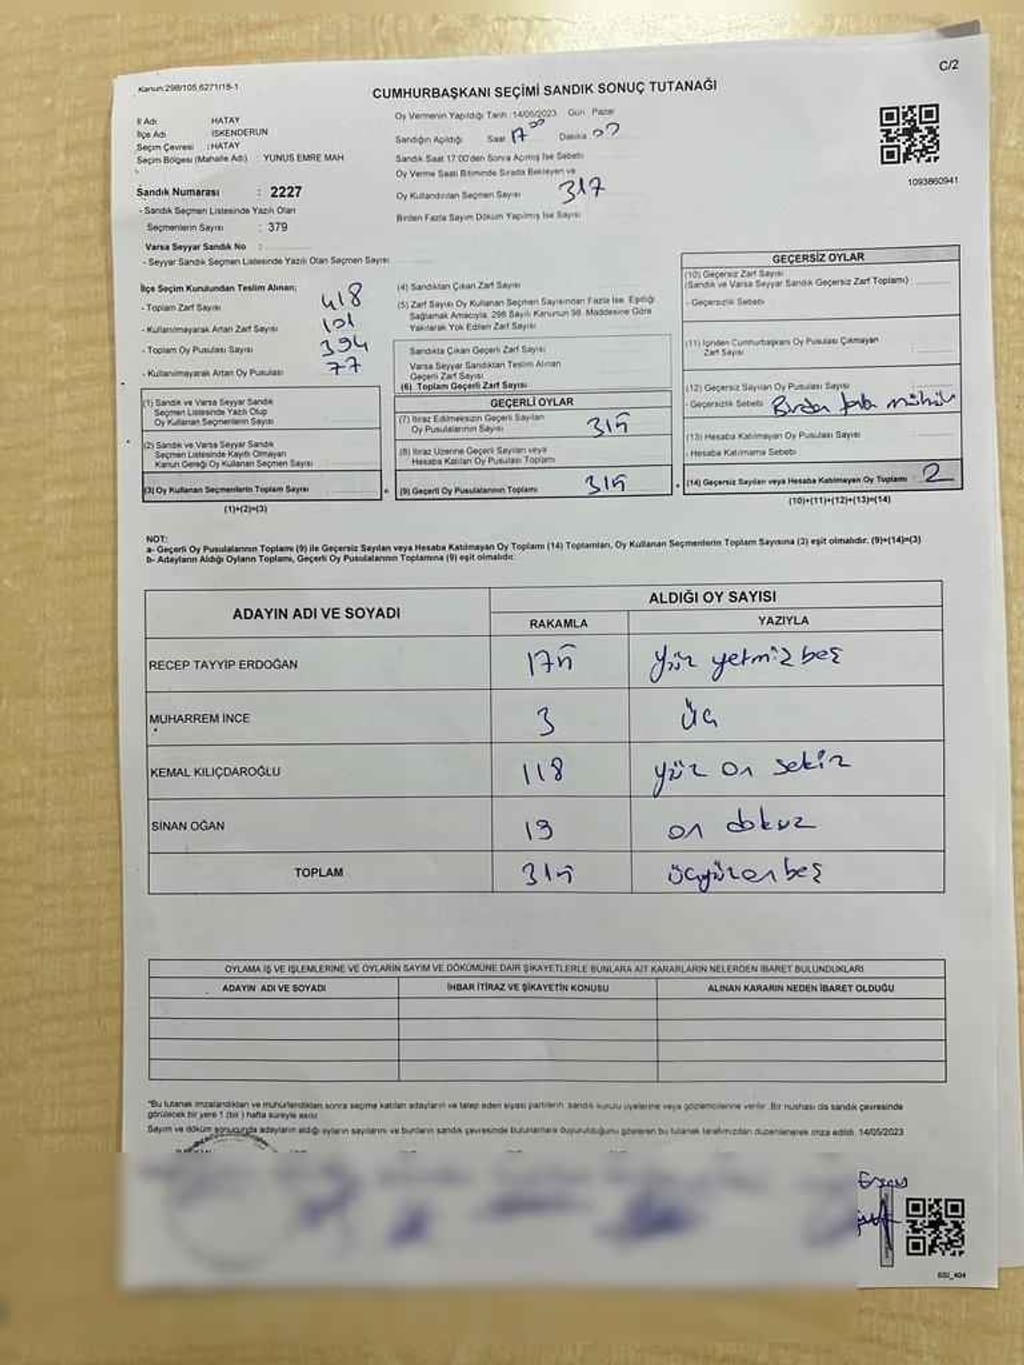 Kanun:298/105,6271/18-1
C/2
CUMHURBAŞKANI SEÇİMİ SANDIK SONUÇ TUTANAĞI
İl Adı HATAY
İlçe Adı ISKENDERUN
Seçim Çevresi : HATAY
Seçim Bölgesi (Mahalle Adı) : YUNUS EMRE MAH
Sandık Numarası : 2227
- Sandık Seçmen Listesinde Yazılı Olan
Seçmenlerin Sayısı : 379
Varsa Seyyar Sandık No :
- Seyyar Sandık Seçmen Listesinde Yazılı Olan Seçmen Sayısı
Oy Vermenin Yapıldığı Tarih 14/05/2023 Gün Pazar
Sandığın Açıldığı Saat 17 00 Dakika 00
Sandık Saat 17:00'den Sonra Açılmış İse Sebebi
Oy Verme Saati Bitiminde Sırada Bekleyen ve
Oy Kullandırılan Seçmen Sayısı 317
Birden Fazla Sayım Döküm Yapılmış İse Sayısı
1093860941
İlçe Seçim Kurulundan Teslim Alınan;
- Toplam Zarf Sayısı 418
- Kullanılmayarak Artan Zarf Sayısı 101
- Toplam Oy Pusulası Sayısı 394
- Kullanılmayarak Artan Oy Pusulası 77
(1) Sandık ve Varsa Seyyar Sandık
Seçmen Listesinde Yazılı Olup
Oy Kullanan Seçmen Sayısı
(2) Sandık ve Varsa Seyyar Sandık
Seçmen Listesinde Kayıtlı Olmayan
Kanun Gereği Oy Kullanan Seçmen Sayısı
(3) Oy Kullanan Seçmenlerin Toplam Sayısı
(1)+(2)=(3)
=
(4) Sandıktan Çıkan Zarf Sayısı
(5) Zarf Sayısı Oy Kullanan Seçmen Sayısından Fazla İse, Eşitliği
Sağlamak Amacıyla, 298 Sayılı Kanunun 98. Maddesine Göre
Yakılarak Yok Edilen Zarf Sayısı
Sandıkta Çıkan Geçerli Zarf Sayısı
Varsa Seyyar Sandıktan Teslim Alınan
Geçerli Zarf Sayısı
(6) Toplam Geçerli Zarf Sayısı
GEÇERLİ OYLAR
(7) İtiraz Edilmeksizin Geçerli Sayılan
Oy Pusulalarının Sayısı 315
(8) İtiraz Üzerine Geçerli Sayılan veya
Hesaba Katılan Oy Pusulası Toplamı
(9) Geçerli Oy Pusulalarının Toplamı 315
+
GEÇERSİZ OYLAR
(10) Geçersiz Zarf Sayısı
(Sandık ve Varsa Seyyar Sandık Geçersiz Zarf Toplamı)
- Geçersizlik Sebebi
(11) İçinden Cumhurbaşkanı Oy Pusulası Çıkmayan
Zarf Sayısı
(12) Geçersiz Sayılan Oy Pusulası Sayısı
- Geçersizlik Sebebi Birden fazla mühür
(13) Hesaba Katılmayan Oy Pusulası Sayısı
- Hesaba Katılmama Sebebi
(14) Geçersiz Sayılan veya Hesaba Katılmayan Oy Toplamı 2
(10)+(11)+(12)+(13)=(14)
NOT:
a- Geçerli Oy Pusulalarının Toplamı (9) ile Geçersiz Sayılan veya Hesaba Katılmayan Oy Toplamı (14) Toplamları, Oy Kullanan Seçmenlerin Toplam Sayısına (3) eşit olmalıdır. (9)+(14)=(3)
b- Adayların Aldığı Oyların Toplamı, Geçerli Oy Pusulalarının Toplamına (9) eşit olmalıdır.
ADAYIN ADI VE SOYADI
ALDIĞI OY SAYISI
RAKAMLA YAZIYLA
RECEP TAYYİP ERDOĞAN 175 yüz yetmiz beş
MUHARREM İNCE 3 üç
KEMAL KILIÇDAROĞLU 118 yüz on sekiz
SİNAN OĞAN 19 on dokuz
TOPLAM 315 üçyüzonbeş
OYLAMA İŞ VE İŞLEMLERİNE VE OYLARIN SAYIM VE DÖKÜMÜNE DAİR ŞİKAYETLERLE BUNLARA AİT KARARLARIN NELERDEN İBARET BULUNDUKLARI
ADAYIN ADI VE SOYADI İHBAR İTİRAZ VE ŞİKAYETİN KONUSU ALINAN KARARIN NEDEN İBARET OLDUĞU
"Bu tutanak imzalandıktan ve mühürlendikten sonra seçime katılan adayların ve talep eden siyasi partilerin sandık kurulu üyelerine veya gözlemcilerine verilir. Bir nüshası da sandık çevresinde
görülecek bir yere 1 (bir) hafta süreyle asılır.
Sayım ve döküm sonucunda adayların aldığı oyların sayılarını ve bunların sandık çevresinde bulunanlara duyurulduğunu gösteren bu tutanak tarafımızdan düzenlenerek imza edildi. 14/05/2023